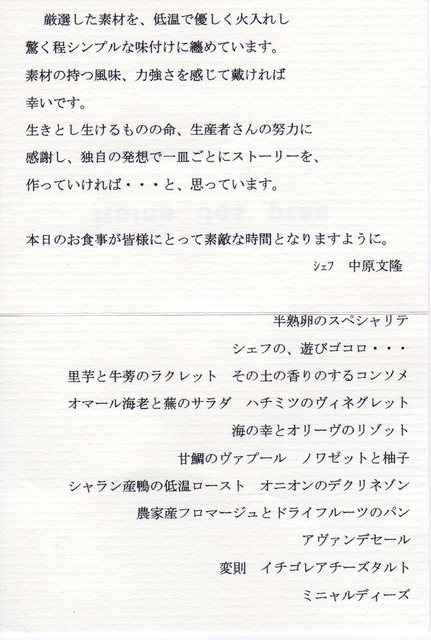 厳選した素材を、低温で優しく火入れし
驚く程シンプルな味付けに纏めています。
素材の持つ風味、力強さを感じて戴ければ
幸いです。
生きとし生けるものの命、生産者さんの努力に
感謝し、独自の発想で一皿ごとにストーリーを、
作っていければ・・・と、思っています。
本日のお食事が皆様にとって素敵な時間となりますように。
ｼｪﾌ　中原文隆
半熟卵のスペシャリテ
シェフの、遊びゴコロ・・・
里芋と牛蒡のラクレット　その土の香りのするコンソメ
オマール海老と蕪のサラダ　ハチミツのヴィネグレット
海の幸とオリーヴのリゾット
甘鯛のヴァプール　ノワゼットと柚子
シャラン産鴨の低温ロースト　オニオンのデクリネゾン
農家産フロマージュとドライフルーツのパン
アヴァンデセール
変則　イチゴレアチーズタルト
ミニャルディーズ